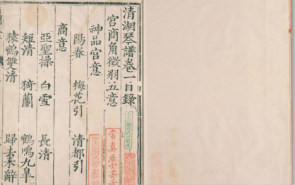 清湖琴譜卷一目錄
宮商角徵羽五意
神品宮意
陽春 梅花引 清都引
商意
亞聖操 白雪 長清
短清 猗蘭 鶴鳴九皋
猿鶴雙清 歸去來辭